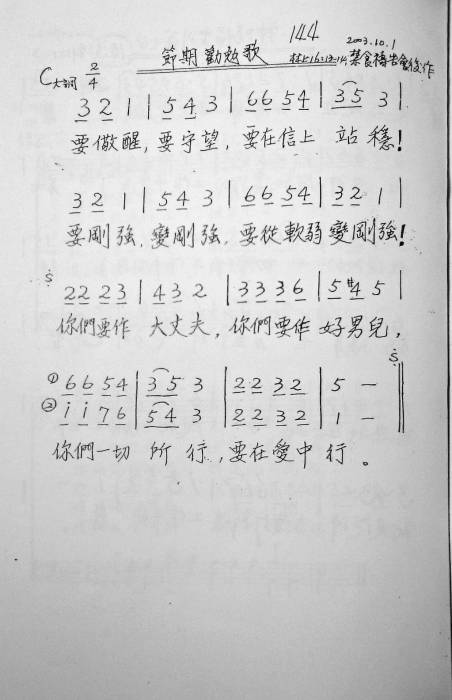 144
節期勸勉歌
2003.10.1
林上16:13-14, 禁食禱告會後作
C大調 2/4
3 2 1 | 5 4 3 | 6 6 5 4 | 3 5 3 |
要儆醒, 要守望, 要在信上 站穩!
3 2 1 | 5 4 3 | 6 6 5 4 | 3 2 1 |
要剛強, 變剛強, 要從軟弱變剛強!
S 2 2 2 3 | 4 3 2 | 3 3 3 6 | 5 #4 5 |
你們要作 大丈夫, 你們要作 好男兒,
① 6 6 5 4 | 3 5 3 | 2 2 3 2 | 5 - S
② i i 7 6 | 5 4 3 | 2 2 3 2 | 1 -
你們一切 所 行, 要在愛中 行。